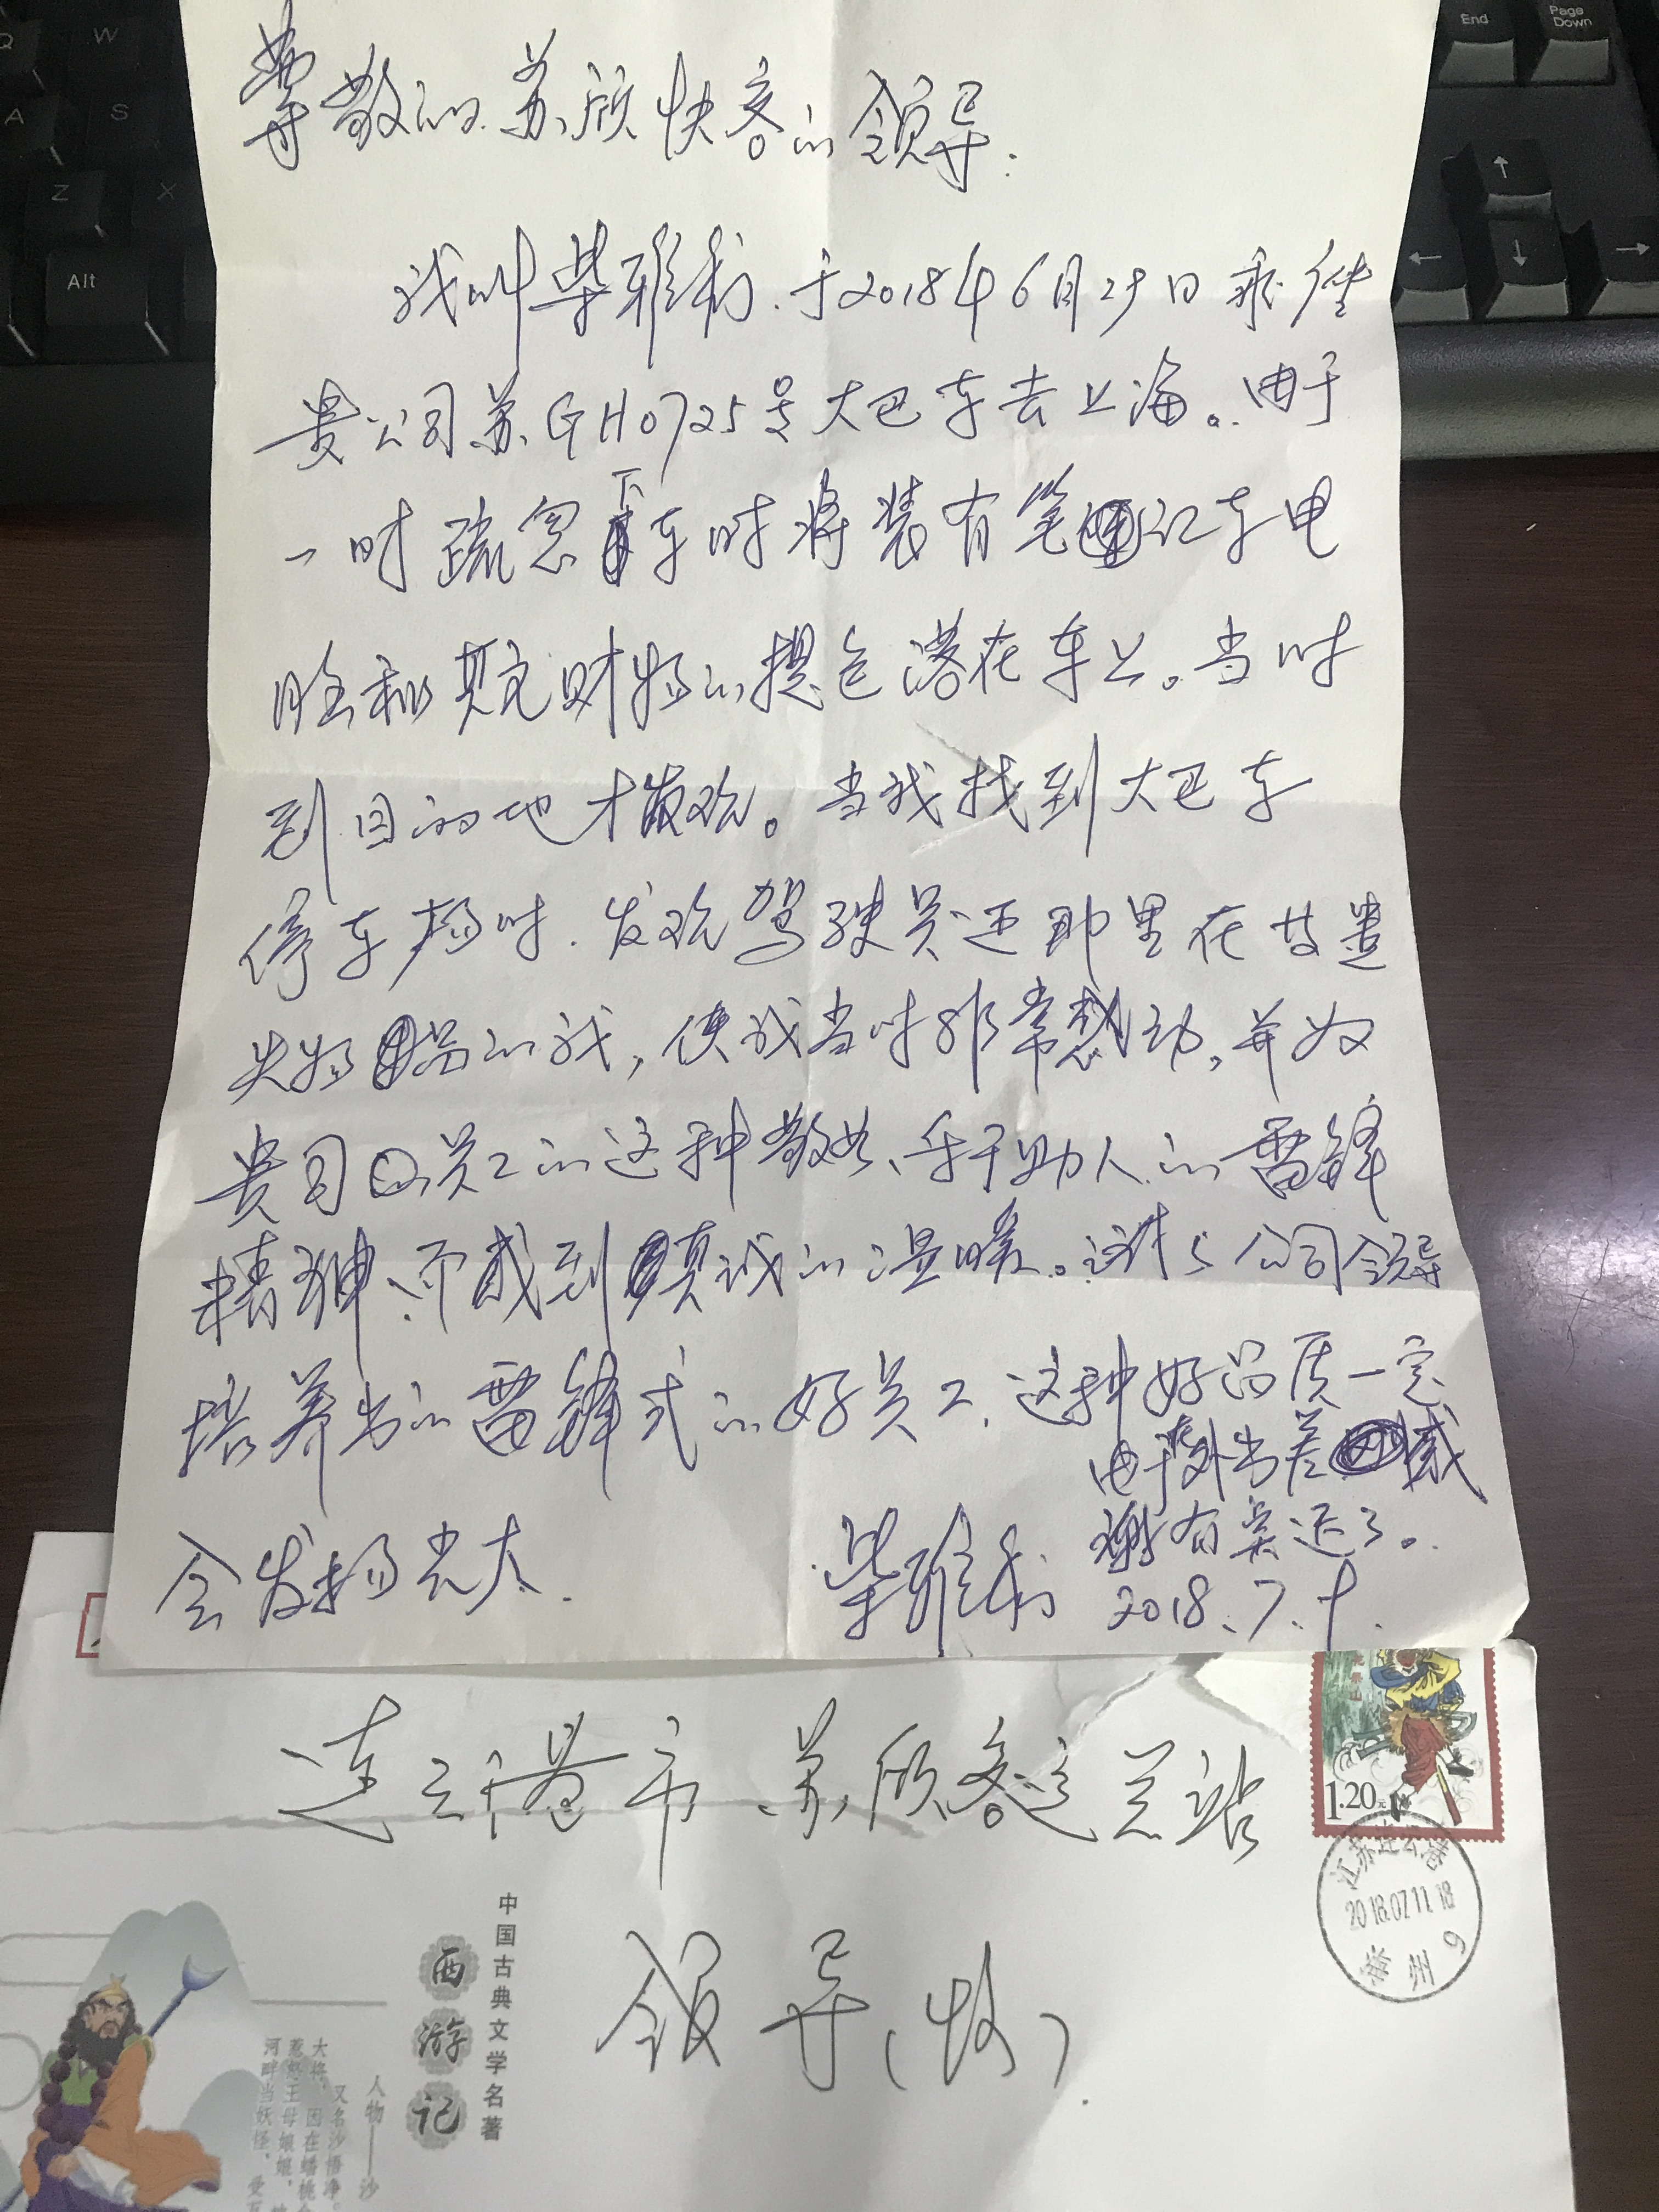 Q
W
A
S
Z
X
Alt
End
Page Down
↑
←
↓
→
尊敬的苏欣快客的领导:
我叫柴雅利.于2018年6月29日乘坐
贵公司苏GH0725号大巴车去上海。由于
一时疏忽下车时将装有笔记本电
脑和其它财物的提包落在车上。当时
到目的地才发现。当我找到大巴车
停车场时.发现驾驶员还那里在等遗
失物品的我,使我当时非常感动,并为
贵司员工的这种敬业、乐于助人的雷锋
精神、而感到真诚的温暖。这是公司领导
培养出的雷锋式的好员工,这种好品质一定
会发扬光大.
由于出差感
谢有些迟了。
柴雅利 2018.7.9.
连云港市苏欣客运总站
领导(收)
1.20元
江苏连云港
2018.07.11.18
9
中国古典文学名著
西游记
人物——沙
又名沙悟净。
大将,因在蟠桃会
惹怒王母娘娘,
河畔当妖怪,受